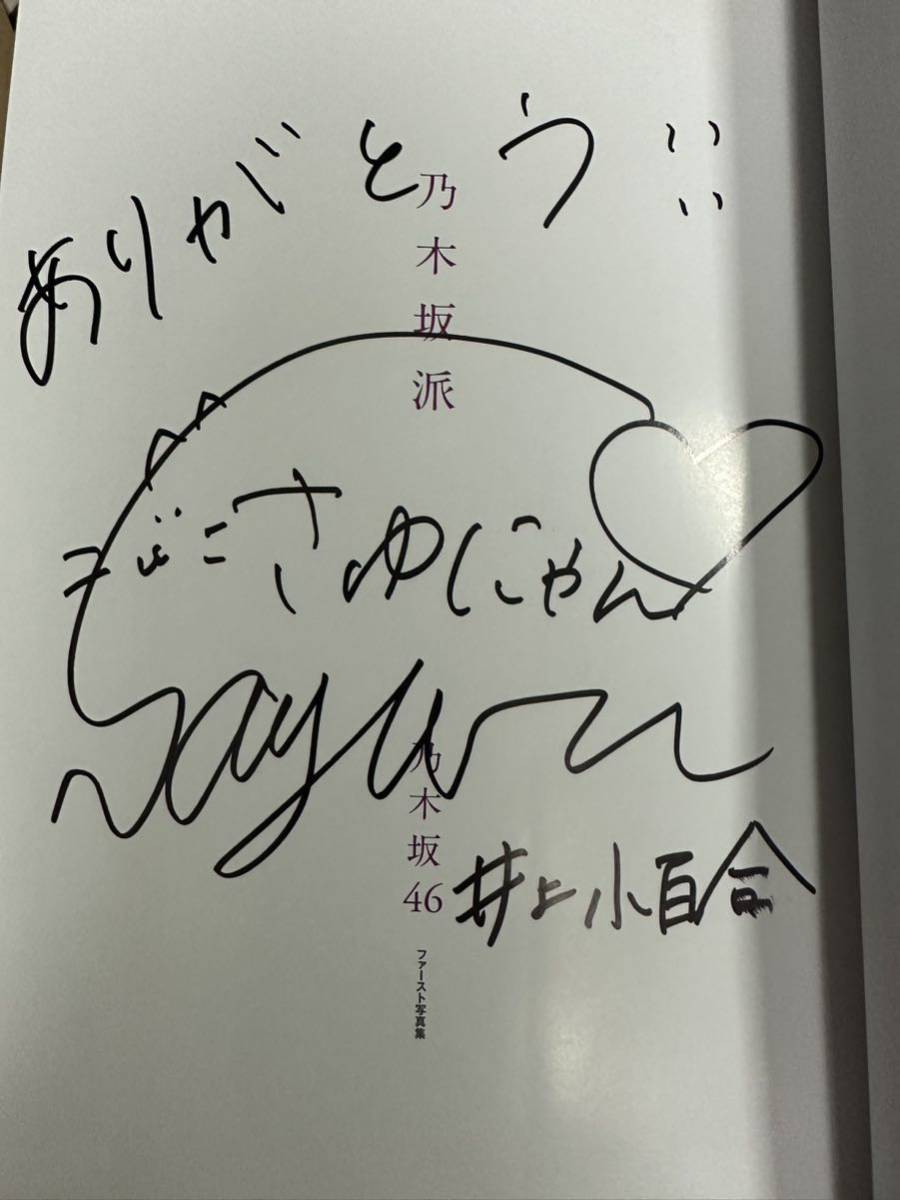 ありがとう
乃木坂派
さゆにゃん
sayu
乃木坂46
井上小百合
ファースト写真集